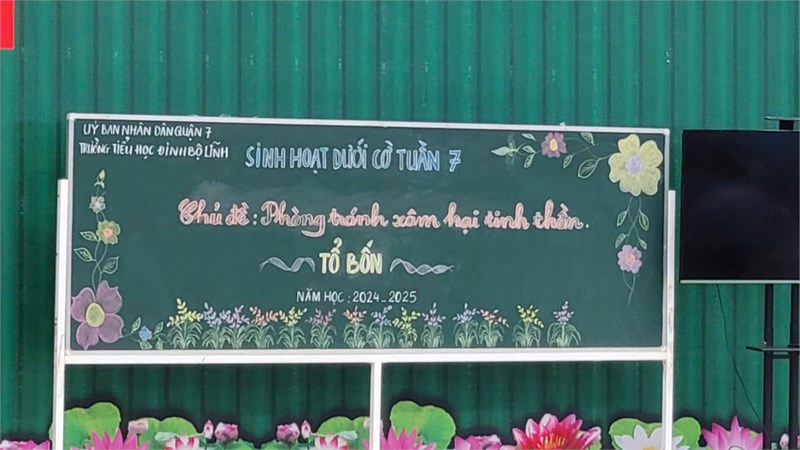 UỶ BAN NHÂN DÂN QUẬN 7
TRƯỜNG TIỂU HỌC ĐINH BỘ LĨNH
SINH HOẠT DƯỚI CỜ TUẦN 7
Chủ đề : Phòng tránh xâm hại tinh thần.
TỔ BỐN
NĂM HỌC : 2024 - 2025